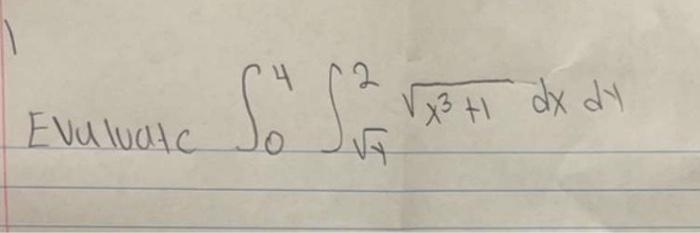 Evaluatc ∫₀⁴ ∫_{√y}² √(x³+1) dx dy